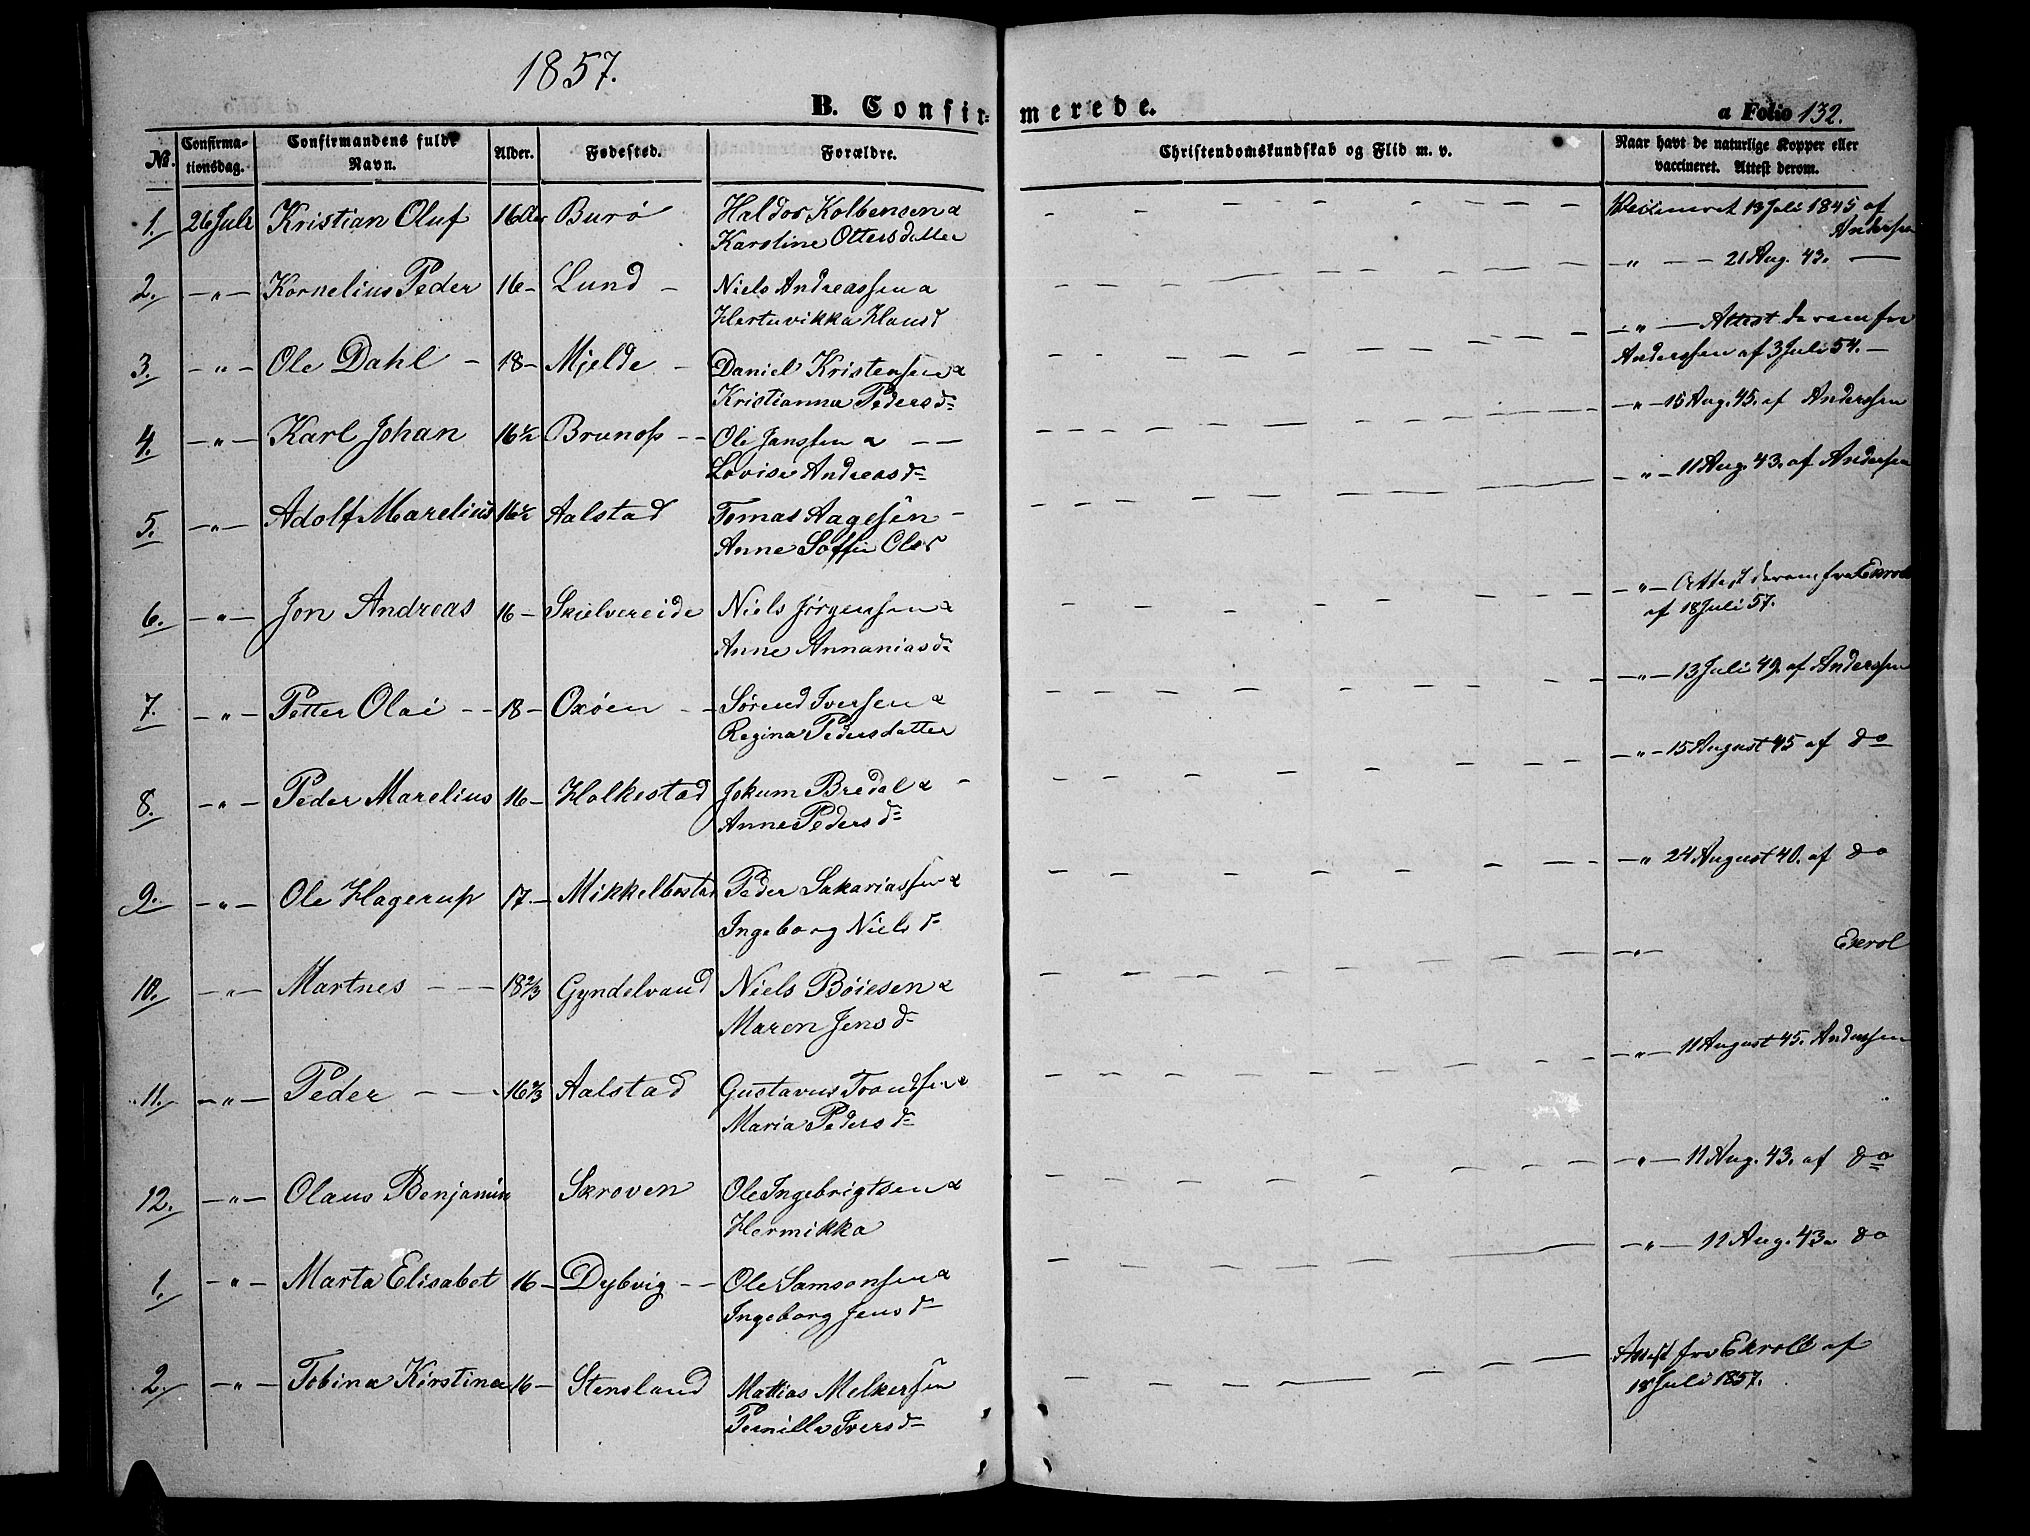 1857.
B. Confirmerede.
a Folio 132.
No. Confirmationsdag. Confirmandens fulde Navn. Alder. Fødested. Forældre. Christendomskundskab og Flid m. v. Naar havt de naturlige Kopper eller vaccineret. Attest derom.
1. 26 Juli Kristian Oluf 16 Burö Haldor Kolbensen & 13 Juli 1845 af
Karstine Ottersdatter Andersen
2. — " — Kornelius Peder 16 – Lund – Niels Andreassen & — " — 21 Aug. 43. —
Hans d
3. — " — Ole Dahl – 18 – Mjelde – Daniel Kristensen & — " — Attest derom fra
Kristianna Peders d= Anderssen af 3 Juli 54. —
4. — " — Karl Johan 16½ – – Ole Janssen & — — — " — 15 Aug. 45. af Anderssen
Lovise Andreas d=
5. — " — Adolf Marelius 16½ Aalstad Tomas Aagesen – — " — 11 Aug. 43. af Andersen
Anne Ols
6. — " — Jon Andreas 16 – Skielvereide Niels Jörgensen & — " — Attest derom fra
Anne Annanias d= af 18 Juli 57.
7. — " — Petter Olai – – 18 – Oxöen – – Iversen & — " — 13 Juli af Anderssen
Regina Pedersdatter
8. — " — Peder Marelius 16 – Holkestad Jokum Bredal & – — " — 15 August 45 af do
Anne Peders d=
9. — " — Ole Hagerup 17. – Peder Sakariassen & — " 24 August 40. af do
Ingeborg Niels d=
10. — " — Martnes – – – 18⅔ Gyndelvand Niels Böiesen & — " —
Maren Jens d=
11. — " — Peder – – – 16⅔ Aalstad Gustavus & — " — 11 August 45. Anderssen
Maria Peders d=
12. — " — Olaus Benjamin Skroven Ole Ingebrigtsen & — " — 11 Aug. 43. af do
Hermikka
1. — " — Marta Elisabet 16 – Dybvig – – Ole Samsonsen & — " — 11 Aug. 43. do
Ingeborg Jens d=
2. — " — Tobina Kirstina 16 – Stensland Mattias Melkersen Attest fra af
Pernilla Ivers d= 18 Juli 1857.